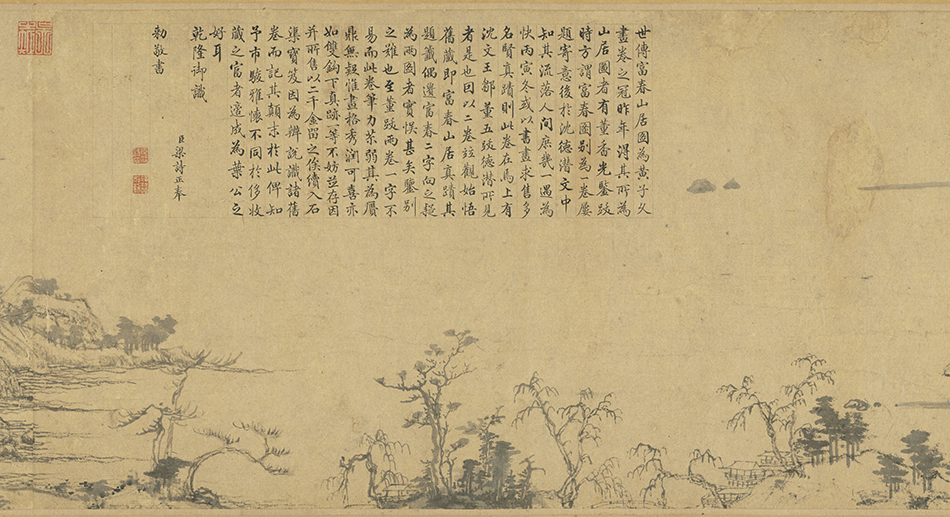 世傳富春山居圖為黃子久
畫卷之冠昨年得其所為
山居圖者有董香光鑒跋
時方謂富春圖別為一卷屢
題寄意後於沈德潛文中
知其流落人間庶幾一遇為
快丙寅冬或以書畫求售多
名賢真蹟則此卷在焉上有
沈文王鄒董五跋德潛所見
者是也因以二卷竝觀始悟
舊藏即富春山居真蹟其
題籤偶遺富春二字向之疑
為兩圖者實悞甚矣鑒別
之難也至董跋兩卷一字不
易而此卷筆力苶弱其為贗
鼎無疑惟畫格秀潤可喜亦
如雙鉤下真跡一等不妨並存因
并所售以二千金留之俟續入石
渠寶笈因為辨說識諸舊
卷而記其顛末於此俾知
予市駿雅懷不同於侈收
藏之富者適成為葉公之
好耳
乾隆御識
臣梁詩正奉
勅敬書